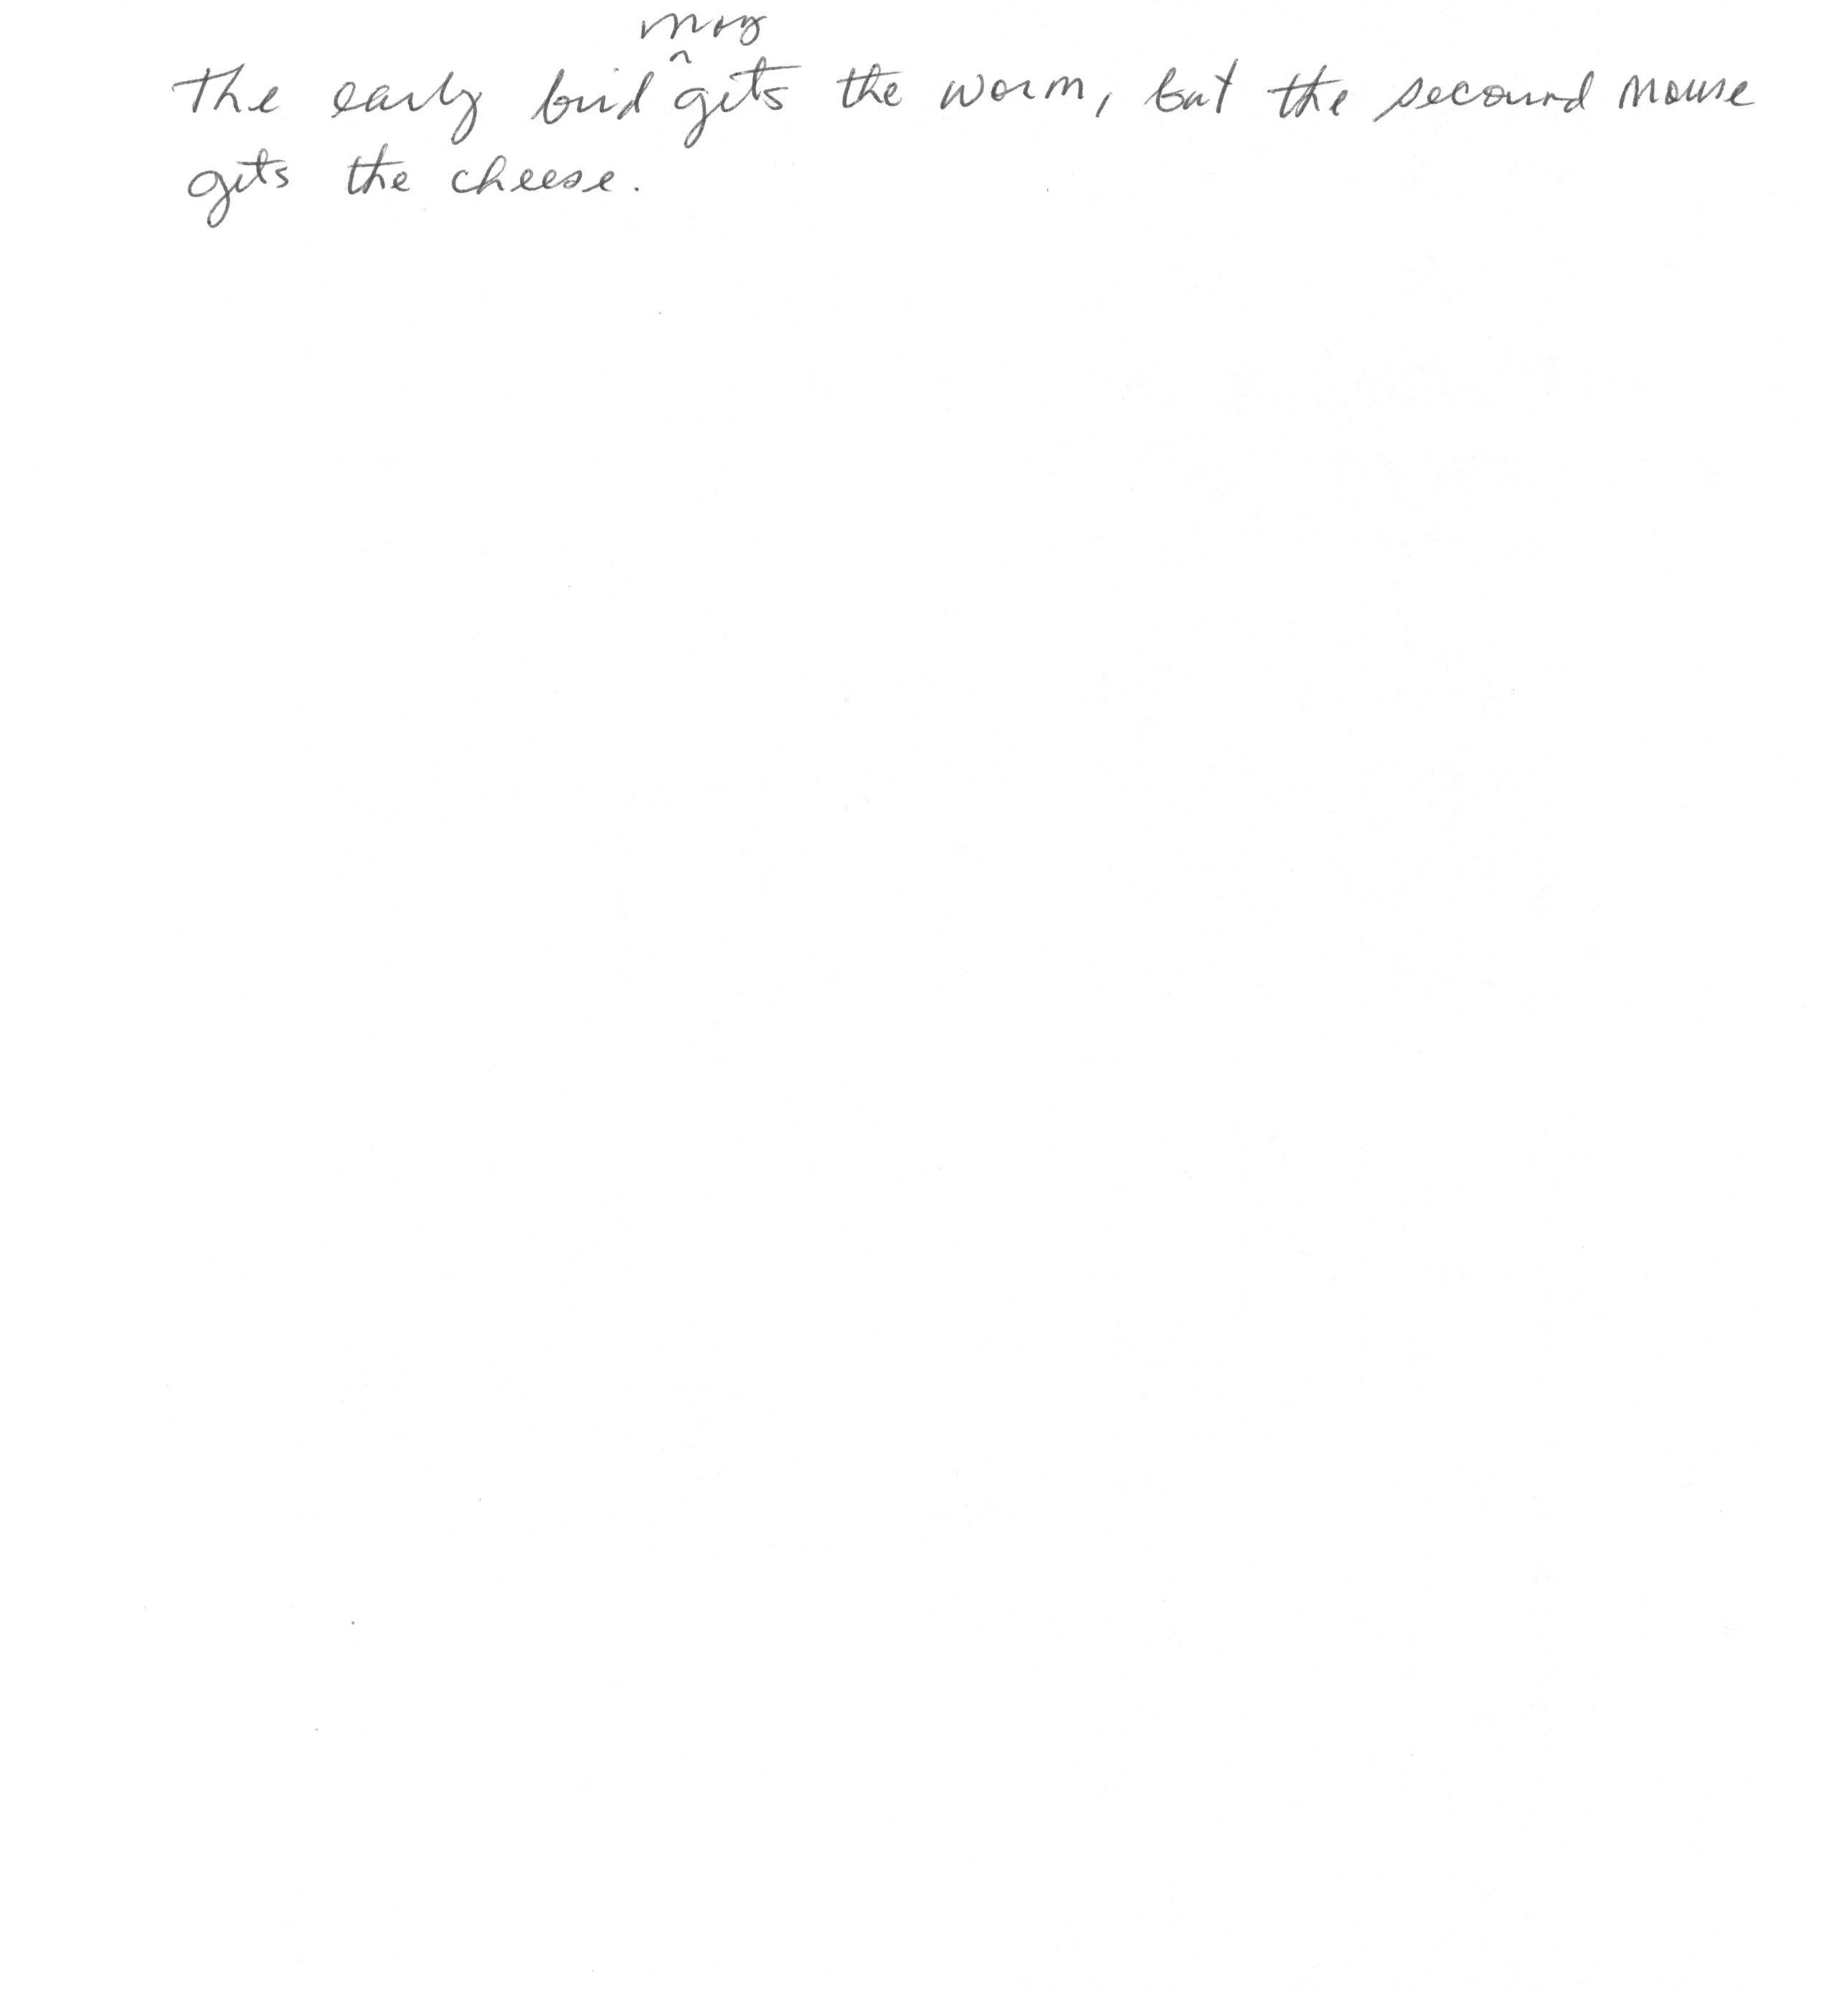 The early bird may gets the worm, but the second mouse
gets the cheese.